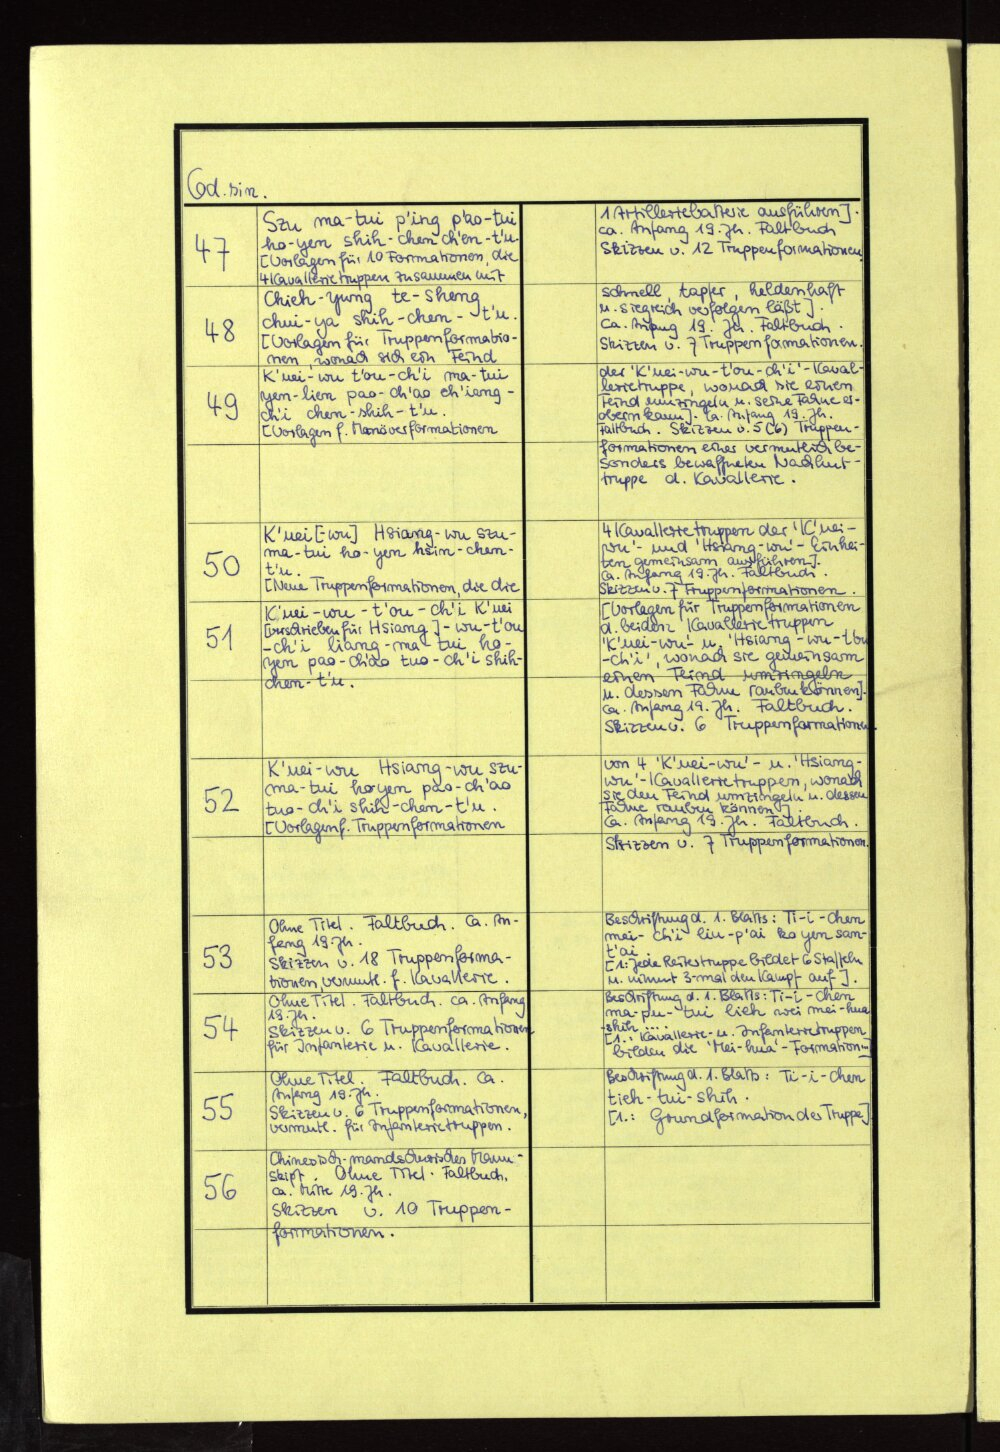 Cod. sin.
47
Szu ma-tui p'ing p'ao-tui
ho-yen shih-chen ch'en-t'u.
[Vorlagen für 10 Formationen, die
4 Kavallerietruppen zusammen mit
1 Artilleriebatterie ausführen].
ca. Anfang 19. Jh. Faltbuch
Skizzen v. 12 Truppenformationen.
48
Chieh-yung te-sheng
chui-ya shih-chen-t'u.
[Vorlagen für Truppenformatio-
nen, wonach sich ein Feind
schnell, tapfer, heldenhaft
u. siegreich verfolgen läßt].
Ca. Anfang 19. Jh. Faltbuch.
Skizzen v. 7 Truppenformationen.
49
K'uei-wu t'ou-ch'i ma-tui
yen-lien pao-ch'ao ch'iang-
ch'i chen-shih-t'u.
[Vorlagen f. Manöverformationen
der 'K'uei-wu-t'ou-ch'i'-Kaval-
lerietruppe, wonach sie einen
Feind umzingeln u. seine Fahne er-
obern kann]. Ca. Anfang 19. Jh.
Faltbuch. Skizzen v. 5 (6) Truppen-
formationen einer vermutlich be-
sonders bewaffneten Nachhut-
truppe d. Kavallerie.
50
K'uei [-wu] Hsiang-wu szu-
ma-tui ho-yen hsin-chen-
t'u.
[Neue Truppenformationen, die die
4 Kavallerietruppen der 'K'uei-
wu'- und 'Hsiang-wu'- Einhei-
ten gemeinsam ausführen].
Ca. Anfang 19. Jh. Faltbuch.
Skizzen v. 7 Truppenformationen.
51
K'uei-wu-t'ou-ch'i K'uei
[verschrieben für Hsiang]-wu-t'ou
-ch'i liang-ma tui ho-
yen pao-ch'ao tuo-ch'i shih-
chen-t'u.
[Vorlagen für Truppenformationen
d. beiden Kavallerietruppen
'K'uei-wu'- u. 'Hsiang-wu-t'ou
-ch'i', wonach sie gemeinsam
einen Feind umzingeln
u. dessen Fahne rauben können].
Ca. Anfang 19. Jh. Faltbuch.
Skizzen v. 6 Truppenformationen.
52
K'uei-wu Hsiang-wu szu-
ma-tui ho-yen pao-ch'ao
tuo-ch'i shih-chen-t'u.
[Vorlagen f. Truppenformationen
von 4 'K'uei-wu'- u. 'Hsiang-
wu'-Kavallerietruppen, wonach
sie den Feind umzingeln u. dessen
Fahne rauben können].
Ca. Anfang 19. Jh. Faltbuch.
Skizzen v. 7 Truppenformationen.
53
Ohne Titel. Faltbuch. Ca. An-
fang 19. Jh.
Skizzen v. 18 Truppenforma-
tionen, vermutl. f. Kavallerie.
Beschriftung d. 1. Blatts: Ti-i-chen
mei-ch'i liu-p'ai ko yen san-
t'ai.
[1: Jede Reitertruppe bildet 6 Staffeln
u. nimmt 3-mal den Kampf auf].
54
Ohne Titel. Faltbuch. ca. Anfang
19. Jh.
Skizzen v. 6 Truppenformationen
für Infanterie u. Kavallerie.
Beschriftung d. 1. Blatts: Ti-i-chen
ma-pu-tui lieh wei mei-hua
-shih ...
[1.: Kavallerie- u. Infanterietruppen
bilden die 'Mei-hua'-Formation]
55
Ohne Titel. Faltbuch. Ca.
Anfang 19. Jh.
Skizzen v. 6 Truppenformationen,
vermutl. für Infanterietruppen.
Beschriftung d. 1. Blatts: Ti-i-chen
tieh-tui-shih.
[1.: Grundformation der Truppe]
56
Chinesisch-mandschurisches Manu-
skript. Ohne Titel. Faltbuch.
ca. Mitte 19. Jh.
Skizzen v. 10 Truppen-
formationen.